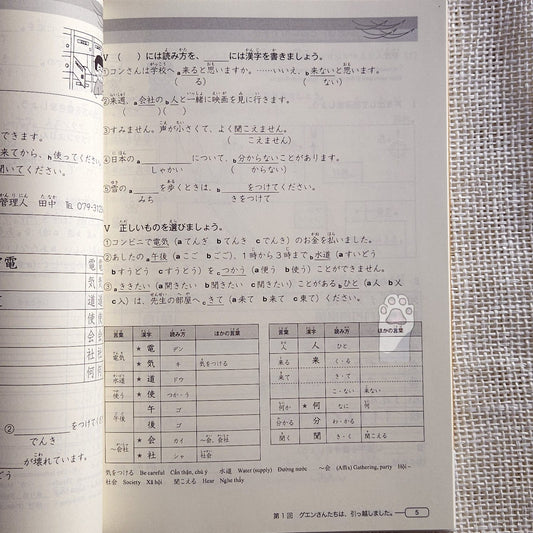 できます。
来てから、b使ってください。
聞いてください。
管理人 田中 Tel 079-312
電 電
気
道
使
会
社
何
②
でんき
をつけてください。
が壊れています。
Ⅴ ( )には読み方を、＿＿には漢字を書きましょう。
①コンさんは学校へa来ると思いますか。……いいえ、b来ないと思います。
( る) ( ない)
②来週、a会社のb人と一緒に映画を見に行きます。
( )( )
③すみません。声が小さくて、よく聞こえません。
( こえません)
④日本のa＿＿について、b分からないことがあります。
しゃかい ( からない)
⑤雪のa＿＿を歩くときは、b＿＿をつけてください。
みち きをつけて
Ⅴ 正しいものを選びましょう。
①コンビニで電気 (aてんぎ bてんき cでんき) のお金を払いました。
②あしたのa午後 (aここ bごご)、1時から3時までb水道 (aすいどう
bすうどう cすうどう) をcつかう (a使う b使う) ことができません。
③aききたい (a聞きたい b聞きたい c聞きたい) ことがあるbひと (a人 b乂
c入) は、先生の部屋へcきて (a来て b来て c東て) ください。
言葉 漢字 読み方 ほかの言葉
電気 ★電 デン
★気 キ 気をつける
水道 ★道 ドウ
使う ★使 つか・う
午後 午 ゴ
後 ゴ
～会社 ★会 カイ ～会、会社
★社 シャ 社会
言葉 漢字 読み方 ほかの言葉
人 人 ひと
来る 来 く・る
来て き・て
こ・ない 来ない
何か ★何 なに 何
分かる 分 わ・かる
聞く 聞 き・く 聞こえる
気をつける Be careful Cẩn thận, chú ý 水道 Water (supply) Đường nước ～会 (Affix) Gathering, party Hội –
社会 Society Xã hội 聞こえる Hear Nghe thấy
第1回 グエンさんたちは、引っ越しました。 5